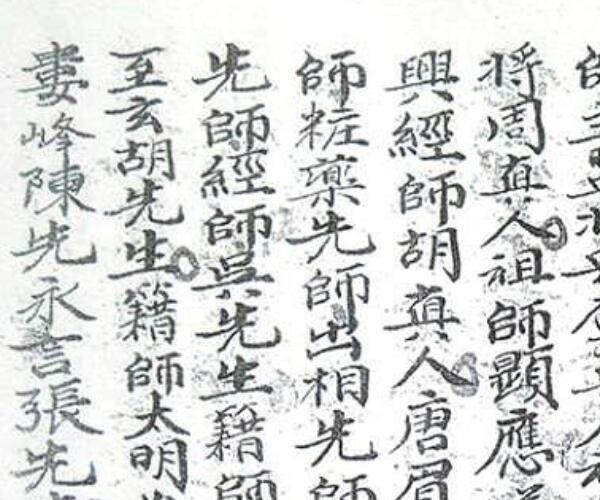 將周真人祖師顯應
興經師胡真人唐眉
師粧藥先師出相先師
先師經師吳先生籍師
至玄胡先生籍師太明
婁峰陳先永言張先